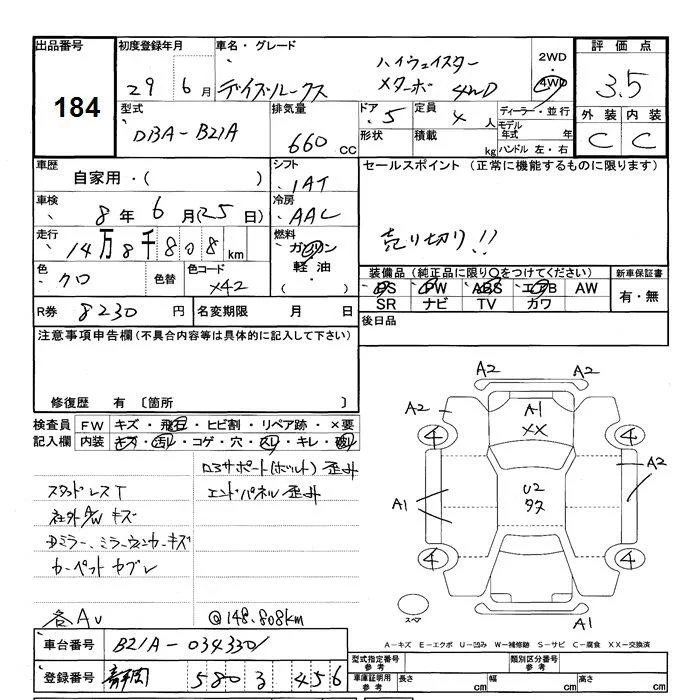 出品番号 184
初度登録年月 29 6月
車名・グレード デイズルークス ハイウェイスター
メターボ 4WD
2WD・4WD
評価点 3.5
外装 C 内装 C
型式 DBA-B21A
排気量 660 CC
ドア 5 定員 4人
形状 積載 kg
ディーラー・並行
モデル年式 年
ハンドル 左・右
車歴 自家用・( )
シフト IAT
車検 8年 6月(25日)
冷房 AAC
走行 14万8千808km
燃料 ガソリン
軽油・( )
色 クロ 色替 色コード X42
R券 8230円 名変期限 月 日
セールスポイント (正常に機能するものに限ります)
売り切り!!
装備品 (純正品に限り○をつけてください)
PS PW ABS エアB AW
SR ナビ TV カワ
新車保証書 有・無
後日品
注意事項申告欄(不具合内容等は具体的に記入して下さい)
修復歴 有 〔箇所 〕
検査員記入欄 FW キズ・飛石・ヒビ割・リペア跡・×要
内装 キズ・汚レ・コゲ・穴・スレ・キレ・
コアサポート(ボルト) 歪み
スタッドレスT エンドパネル歪み
社外A/W キズ
Dミラー、ミラーウィンカーキズ
カーペット ヤブレ
各AU @148.808km
A2 A2
A2 A1 XX
4 4
A2
A1 U2
4 4
スペア A1
A-キズ E-エクボ U-凹み W-補修跡 S-サビ C-腐食 XX-交換済
車台番号 B21A-0343301
登録番号 静岡 580 3 456
型式指定番号 参考 類別区分番号 参考
車庫証明用 参考 長さ cm 幅 cm 高さ cm